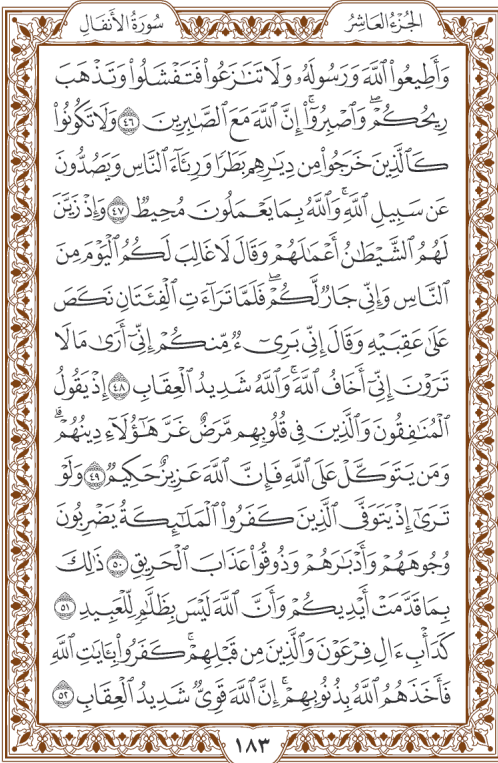 الجُزْءُ العَاشِرُ
سُورَةُ الأَنفَالِ
وَأَطِيعُوا۟ ٱللَّهَ وَرَسُولَهُۥ وَلَا تَنَٰزَعُوا۟ فَتَفْشَلُوا۟ وَتَذْهَبَ
رِيحُكُمْۖ وَٱصْبِرُوٓا۟ۚ إِنَّ ٱللَّهَ مَعَ ٱلصَّٰبِرِينَ ٤٦ وَلَا تَكُونُوا۟
كَٱلَّذِينَ خَرَجُوا۟ مِن دِيَٰرِهِم بَطَرًا وَرِئَآءَ ٱلنَّاسِ وَيَصُدُّونَ
عَن سَبِيلِ ٱللَّهِۚ وَٱللَّهُ بِمَا يَعْمَلُونَ مُحِيطٌ ٤٧ وَإِذْ زَيَّنَ
لَهُمُ ٱلشَّيْطَٰنُ أَعْمَٰلَهُمْ وَقَالَ لَا غَالِبَ لَكُمُ ٱلْيَوْمَ مِنَ
ٱلنَّاسِ وَإِنِّي جَارٌ لَّكُمْۖ فَلَمَّا تَرَآءَتِ ٱلْفِئَتَانِ نَكَصَ
عَلَىٰ عَقِبَيْهِ وَقَالَ إِنِّي بَرِيٓءٌ مِّنكُمْ إِنِّيٓ أَرَىٰ مَا لَا
تَرَوْنَ إِنِّيٓ أَخَافُ ٱللَّهَۚ وَٱللَّهُ شَدِيدُ ٱلْعِقَابِ ٤٨ إِذْ يَقُولُ
ٱلْمُنَٰفِقُونَ وَٱلَّذِينَ فِي قُلُوبِهِم مَّرَضٌ غَرَّ هَٰٓؤُلَآءِ دِينُهُمْۗ
وَمَن يَتَوَكَّلْ عَلَى ٱللَّهِ فَإِنَّ ٱللَّهَ عَزِيزٌ حَكِيمٌ ٤٩ وَلَوْ
تَرَىٰٓ إِذْ يَتَوَفَّى ٱلَّذِينَ كَفَرُوا۟ ٱلْمَلَٰٓئِكَةُ يَضْرِبُونَ
وُجُوهَهُمْ وَأَدْبَٰرَهُمْ وَذُوقُوا۟ عَذَابَ ٱلْحَرِيقِ ٥٠ ذَٰلِكَ
بِمَا قَدَّمَتْ أَيْدِيكُمْ وَأَنَّ ٱللَّهَ لَيْسَ بِظَلَّٰمٍ لِّلْعَبِيدِ ٥١
كَدَأْبِ ءَالِ فِرْعَوْنَ وَٱلَّذِينَ مِن قَبْلِهِمْۚ كَفَرُوا۟ بِـَٔايَٰتِ ٱللَّهِ
فَأَخَذَهُمُ ٱللَّهُ بِذُنُوبِهِمْۚ إِنَّ ٱللَّهَ قَوِيٌّ شَدِيدُ ٱلْعِقَابِ ٥٢
١٨٣